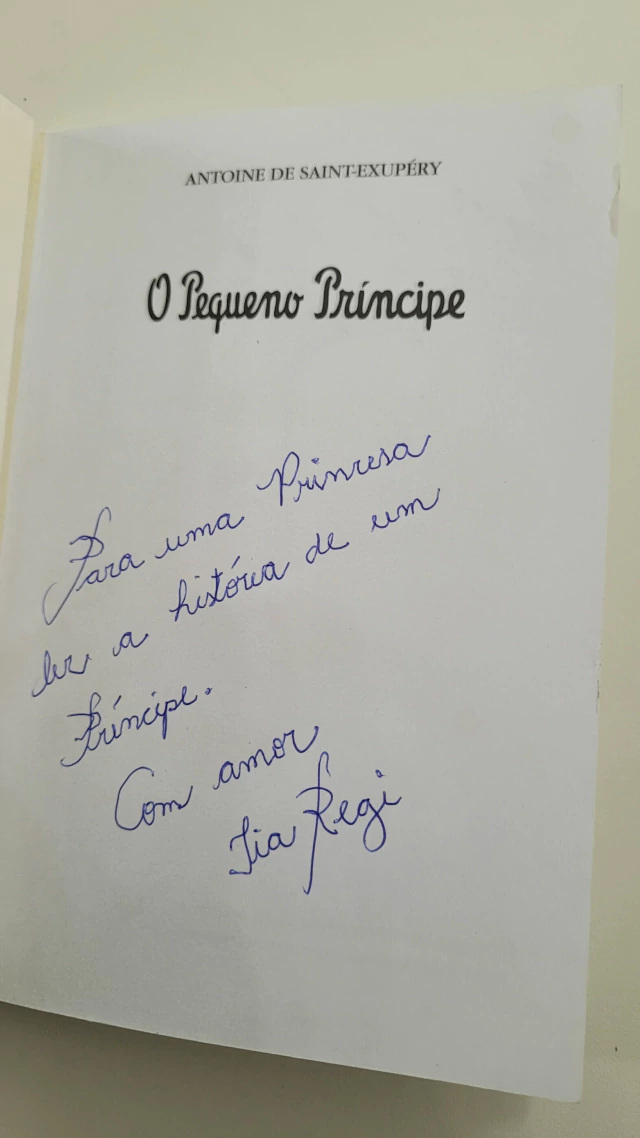 ANTOINE DE SAINT-EXUPÉRY
O Pequeno Príncipe
Para uma Princesa
ler a história de um
Príncipe.
Com amor
Tia Regi